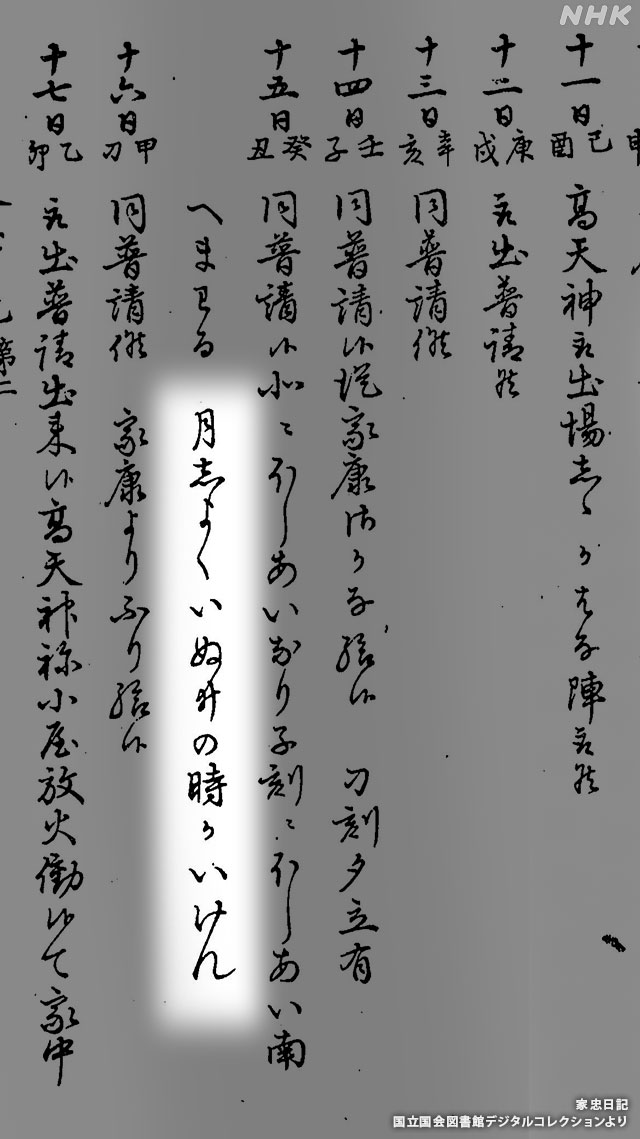 NHK
十一日己酉 高天神 出場志ゝかはな陣
十二日庚戌 出普請
十三日辛亥 同普請
十四日壬子 同普請候従家康 給候 刀刻夕立有
十五日癸丑 同普請候北ニほしあい 子刻ニほしあい南
へまわる 月志よくいぬ井の時かいけん
十六日甲刀 同普請 家康よりふり給候
十七日乙卯 出普請出来候高天神祢小屋放火働候て家中
第二
家忠日記
国立国会図書館デジタルコレクションより